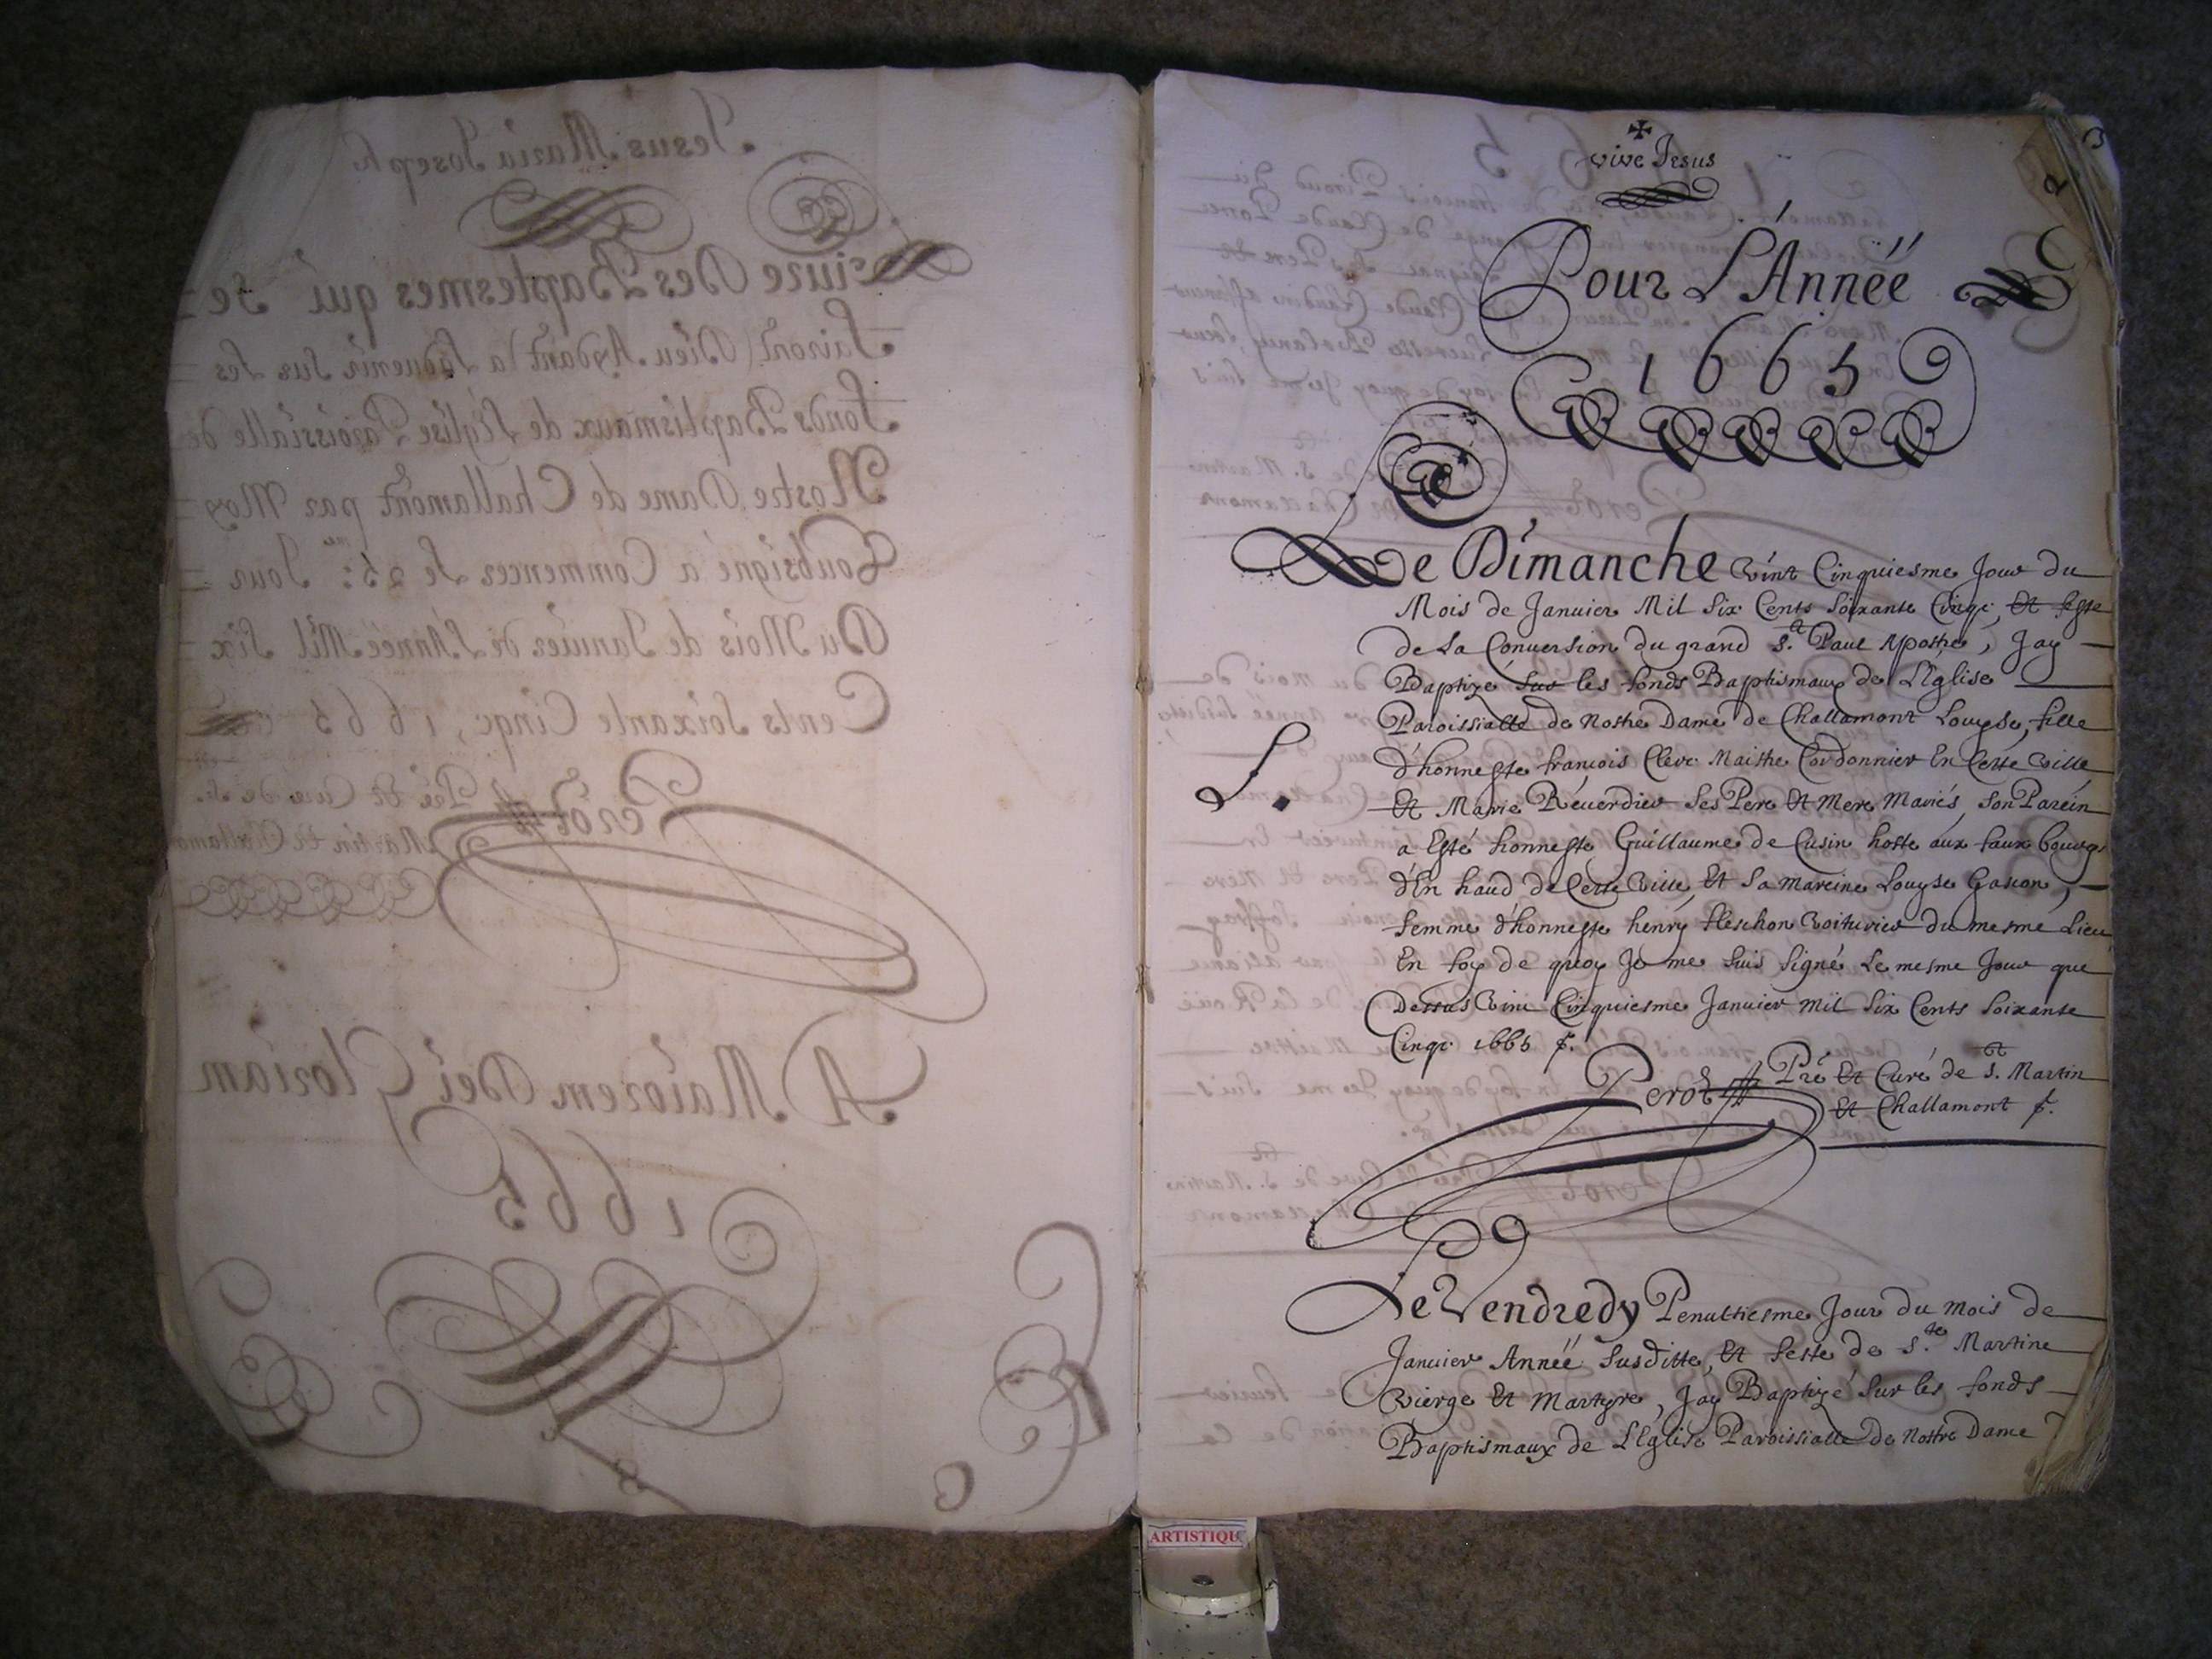 Jesus Maria Joseph
Liure Des Baptesmes qui se
fairont (Dieu Aydant) a l'aduenir sur les
fonds Baptismaux de l'Eglise Paroissialle de
Nostre Dame de Challamont par Moy
Soubsigné a Commencer le 25.me Jour
Du Mois de Januier de l'Année Mil Six
Cents Soixante Cinqc, 1665
Perot Prê et Curé de S.
Martin et Challamont
A Maiorem Dei Gloriam
1665
vive Jesus
Pour L'Année
1665
2
Le Dimanche Vint Cinquiesme Jour du
Mois de Januier Mil Six Cents Soixante Cinqc, Et feste
de La Conuersion du grand S.t Paul Apostre, Jay
Baptizé sur les fonds Baptismaux de L'Eglise
Paroissialle de Nostre Dame de Challamont Louyse, fille
d'honneste francois Clerc Maistre Cordonnier En Cette Ville
Et Marie Reuerdier Ses Pere Et Mere Mariés, Son Parein
a Esté honneste Guillaume de Cusin hoste aux faux bourgs
d'En haud de Cette Ville, Et Sa Mareine Louyse Gascon,
femme d'honneste henry fleschon Voiturier du mesme Lieu
En foy de quoy Je me suis Signé Le mesme Jour que
Dessus Vint Cinquiesme Januier Mil Six Cents Soixante
Cinqc 1665
L.
Perot Prê Et Curé de S.t Martin
Et Challamont
Le Vendredy Penultiesme Jour du Mois de
Januier Année Susditte, Et feste de S.te Martine
Vierge Et Martyre, Jay Baptizé Sur les fonds
Baptismaux de L'Eglise Paroissialle de Nostre Dame
ARTISTIQU